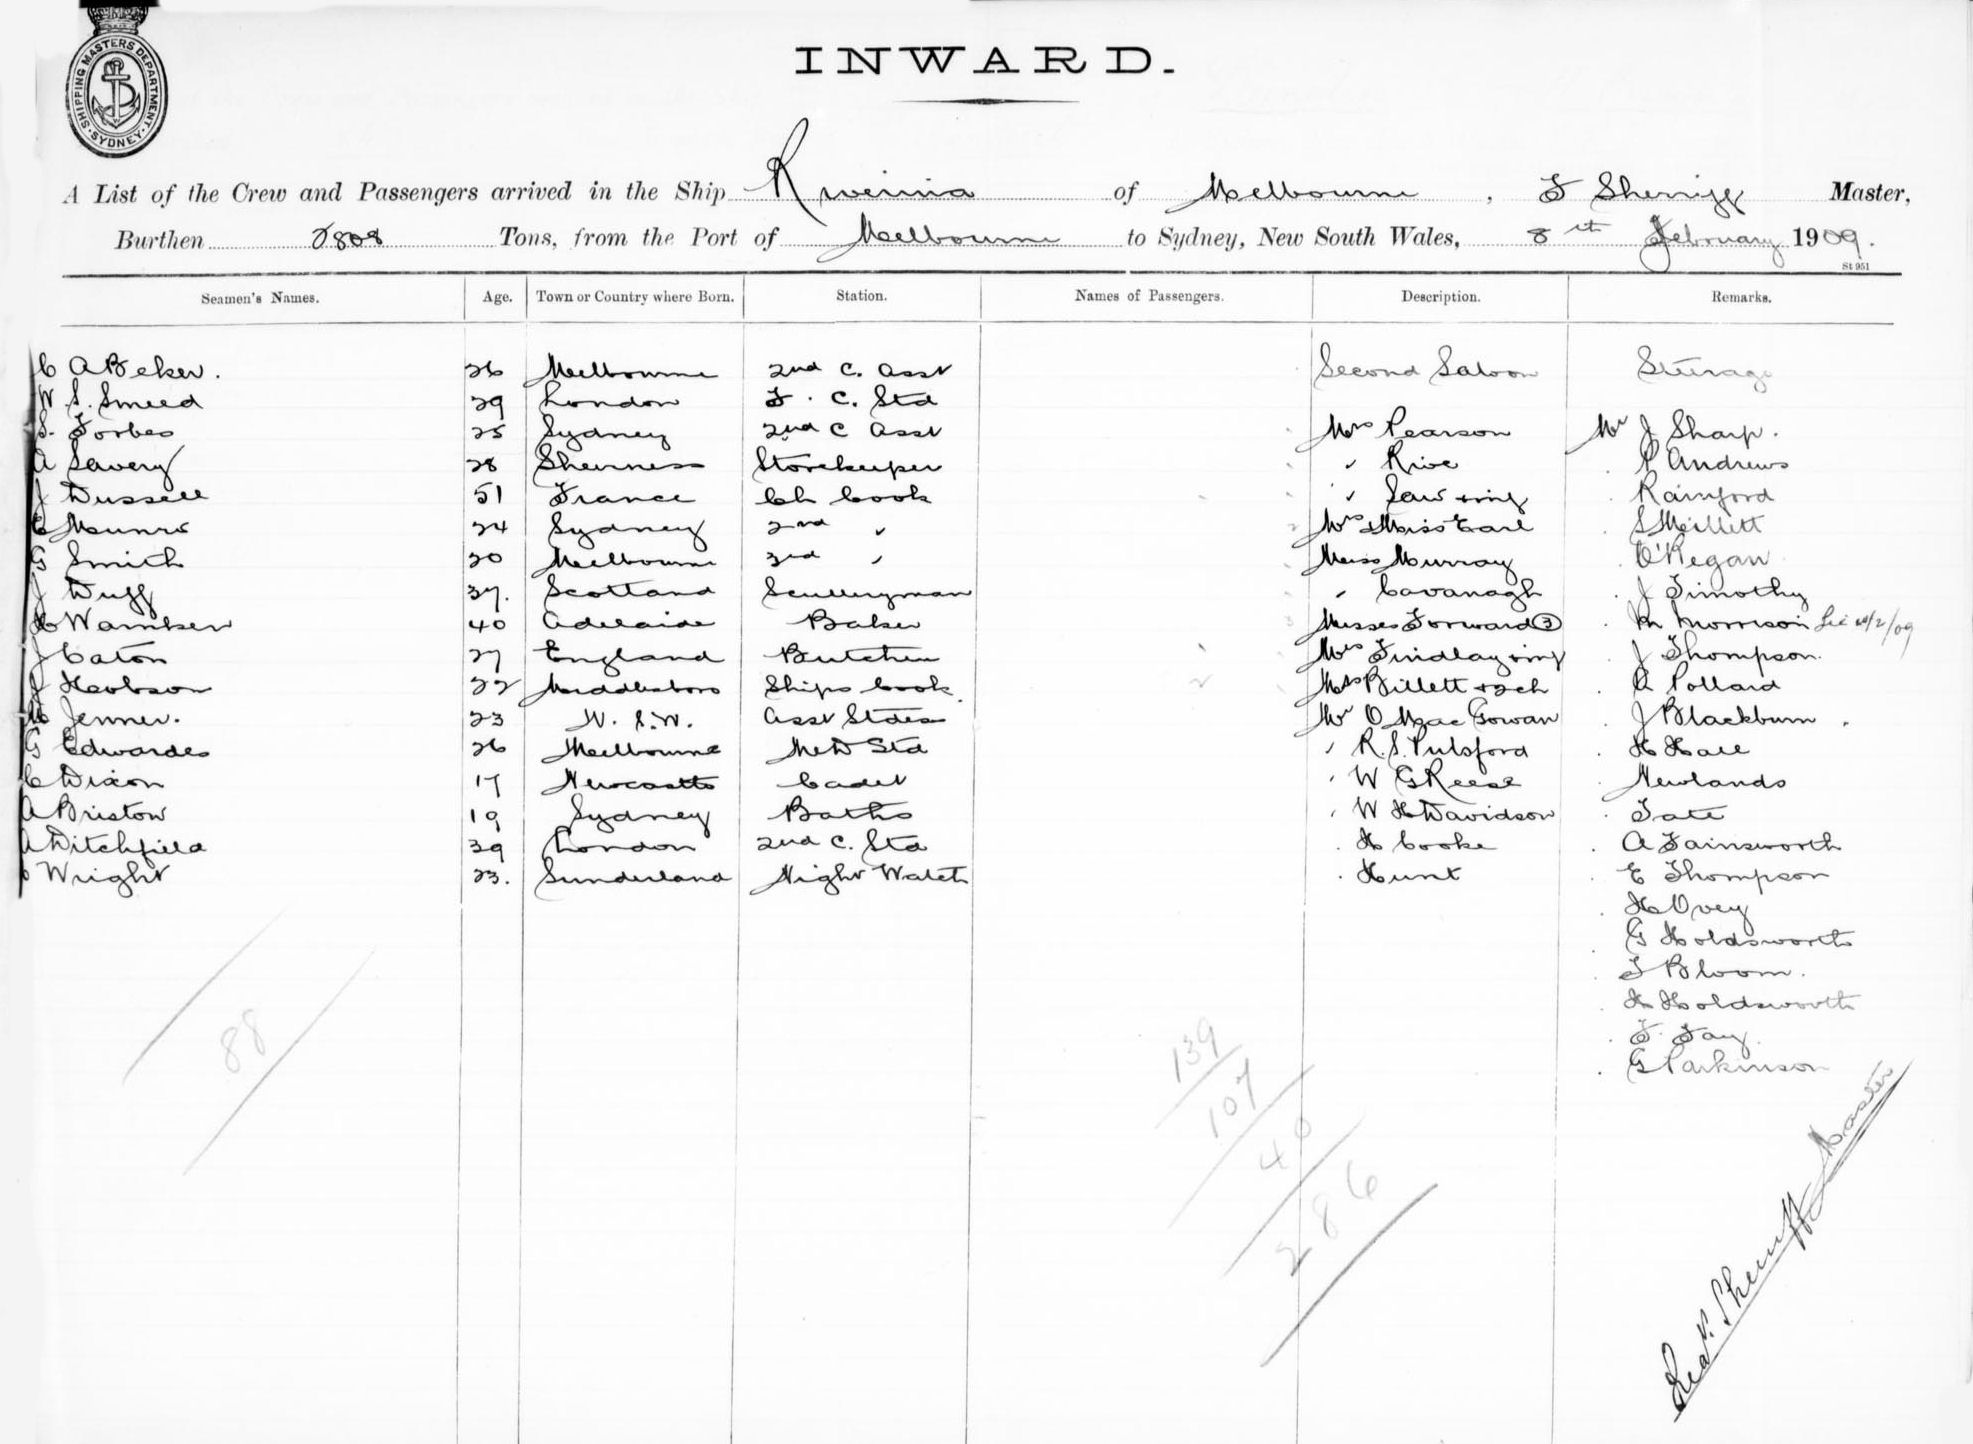 SHIPPING MASTERS DEPARTMENT · SYDNEY ·
INWARD.
A List of the Crew and Passengers arrived in the Ship Riverina of Melbourne, F Sherriff Master,
Burthen 2808 Tons, from the Port of Melbourne to Sydney, New South Wales, 8th February 1909.
St 951
Seamen's Names. Age. Town or Country where Born. Station. Names of Passengers. Description. Remarks.
C A Beker. 26 Melbourne 2nd C. Asst Second Saloon Steerage
W S. Smeed 29 London F. C. Std
S. Forbes 25 Sydney 2nd C Asst Mrs Pearson Mr J Sharp.
A Savery 28 Sheerness Storekeeper " Rice P Andrews
J Dussell 51 France Ch Cook " Law + inf Rainford
C Munro 24 Sydney 2nd " Mrs & Miss Earl S Meillett
G Smith 20 Melbourne 3rd " Miss Murray O'Regan
J Duff 37. Scotland Sculleryman " Cavanagh J Timothy
H Wamken 40 Adelaide Baker Misses Forward (3) M Morrison
J Eaton 27 England Butcher Mrs Findlay + inf J Thompson.
J Hewbson 22 Middlesboro Ships Cook Mrs Billett + 2 ch A Pollard
M Jenner. 23 N. S. W. Asst Stdess Mr O MacGowan J Blackburn.
G Edwardes 26 Melbourne M D Std " R. S. Pulsford H Hall
C Dixon 17 Newcastle Cadet " W G Reese Newlands
A Briston 19 Sydney Baths " W H Davidson Tate
A Ditchfield 39 London 2nd C. Std H Cooke A Fainsworth
Wright 23. Sunderland Night Watch Hunt E Thompson
H Ovey
G Holdsworth
T Bloom.
H Holdsworth
F. Fay.
G Parkinson
88
139
107
40
286
Sherriff Master